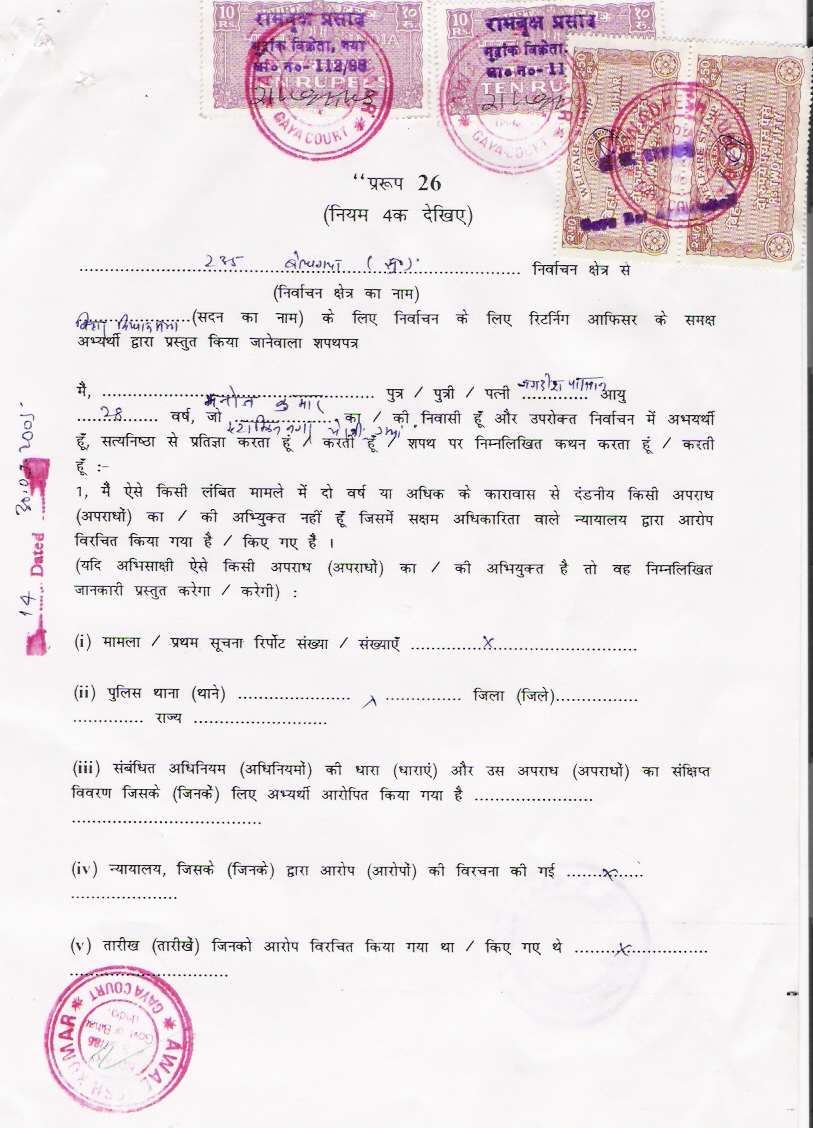 10 Rs.
१० रु.
10 Rs.
१० रु.
रामबृक्ष प्रसाद
मुद्रांक विक्रेता, गया
ला० न०- 112/98
TEN RUPEES
GAYA COURT
रामबृक्ष प्रसाद
मुद्रांक विक्रेता,
ला० न०- 11
TEN RU
GAYA COURT
WELFARE STAMP
“प्ररूप 26
(नियम 4क देखिए)
235 बोधगया (सु०) निर्वाचन क्षेत्र से
(निर्वाचन क्षेत्र का नाम)
विधानसभा (सदन का नाम) के लिए निर्वाचन के लिए रिटर्निग आफिसर के समक्ष
अभ्यर्थी द्वारा प्रस्तुत किया जानेवाला शपथपत्र
मै, मनोज कुमार पुत्र / पुत्री / पत्नी जगदीश पासवान आयु
28 वर्ष, जो का / की निवासी हूँ और उपरोक्त निर्वाचन में अभयर्थी
हूँ, सत्यनिष्ठा से प्रतिज्ञा करता हूं / करती हूँ / शपथ पर निम्नलिखित कथन करता हूं / करती
हूँ :-
1, मै ऐसे किसी लंबित मामले में दो वर्ष या अधिक के कारावास से दंडनीय किसी अपराध
(अपराधों) का / की अभ्यिुक्त नहीं हूँ जिसमें सक्षम अधिकारिता वाले न्यायालय द्वारा आरोप
विरचित किया गया है / किए गए है ।
(यदि अभिसाक्षी ऐसे किसी अपराध (अपराधों) का / की अभियुक्त है तो वह निम्नलिखित
जानकारी प्रस्तुत करेगा / करेगी) :
(i) मामला / प्रथम सूचना रिर्पोट संख्या / संख्याएँ ..............x...........................
(ii) पुलिस थाना (थाने) ..................... x .............. जिला (जिले)................
.............. राज्य ..........................
(iii) संबंधित अधिनियम (अधिनियमों) की धारा (धाराएं) और उस अपराध (अपराधों) का संक्षिप्त
विवरण जिसके (जिनकें) लिए अभ्यर्थी आरोपित किया गया है .......................
.....................................
(iv) न्यायालय, जिसके (जिनके) द्वारा आरोप (आरोपों) की विरचना की गई ........x......
.....................
(v) तारीख (तारीखें) जिनको आरोप विरचित किया गया था / किए गए थे .........x................
...............................
14 Dated
2005
AWADHESH KUMAR
GAYA COURT
Govt of Bihar
India